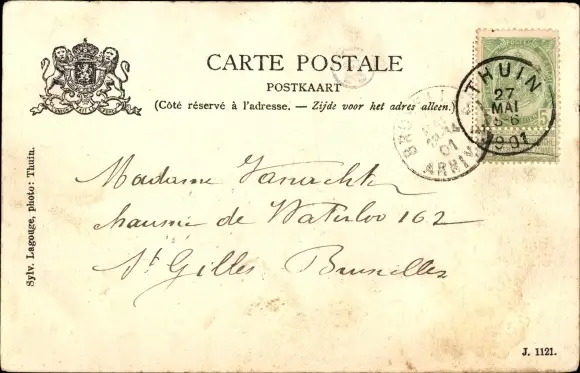 CARTE POSTALE
POSTKAART
(Côté réservé à l'adresse. — Zijde voor het adres alleen.)
THUIN
27
MAI
5-6
1901
5
01
ARRIVÉE
Madame
chaussée de Waterloo 162
St Gilles Bruxelles
Sylv. Lagouge, photo: Thuin.
J. 1121.